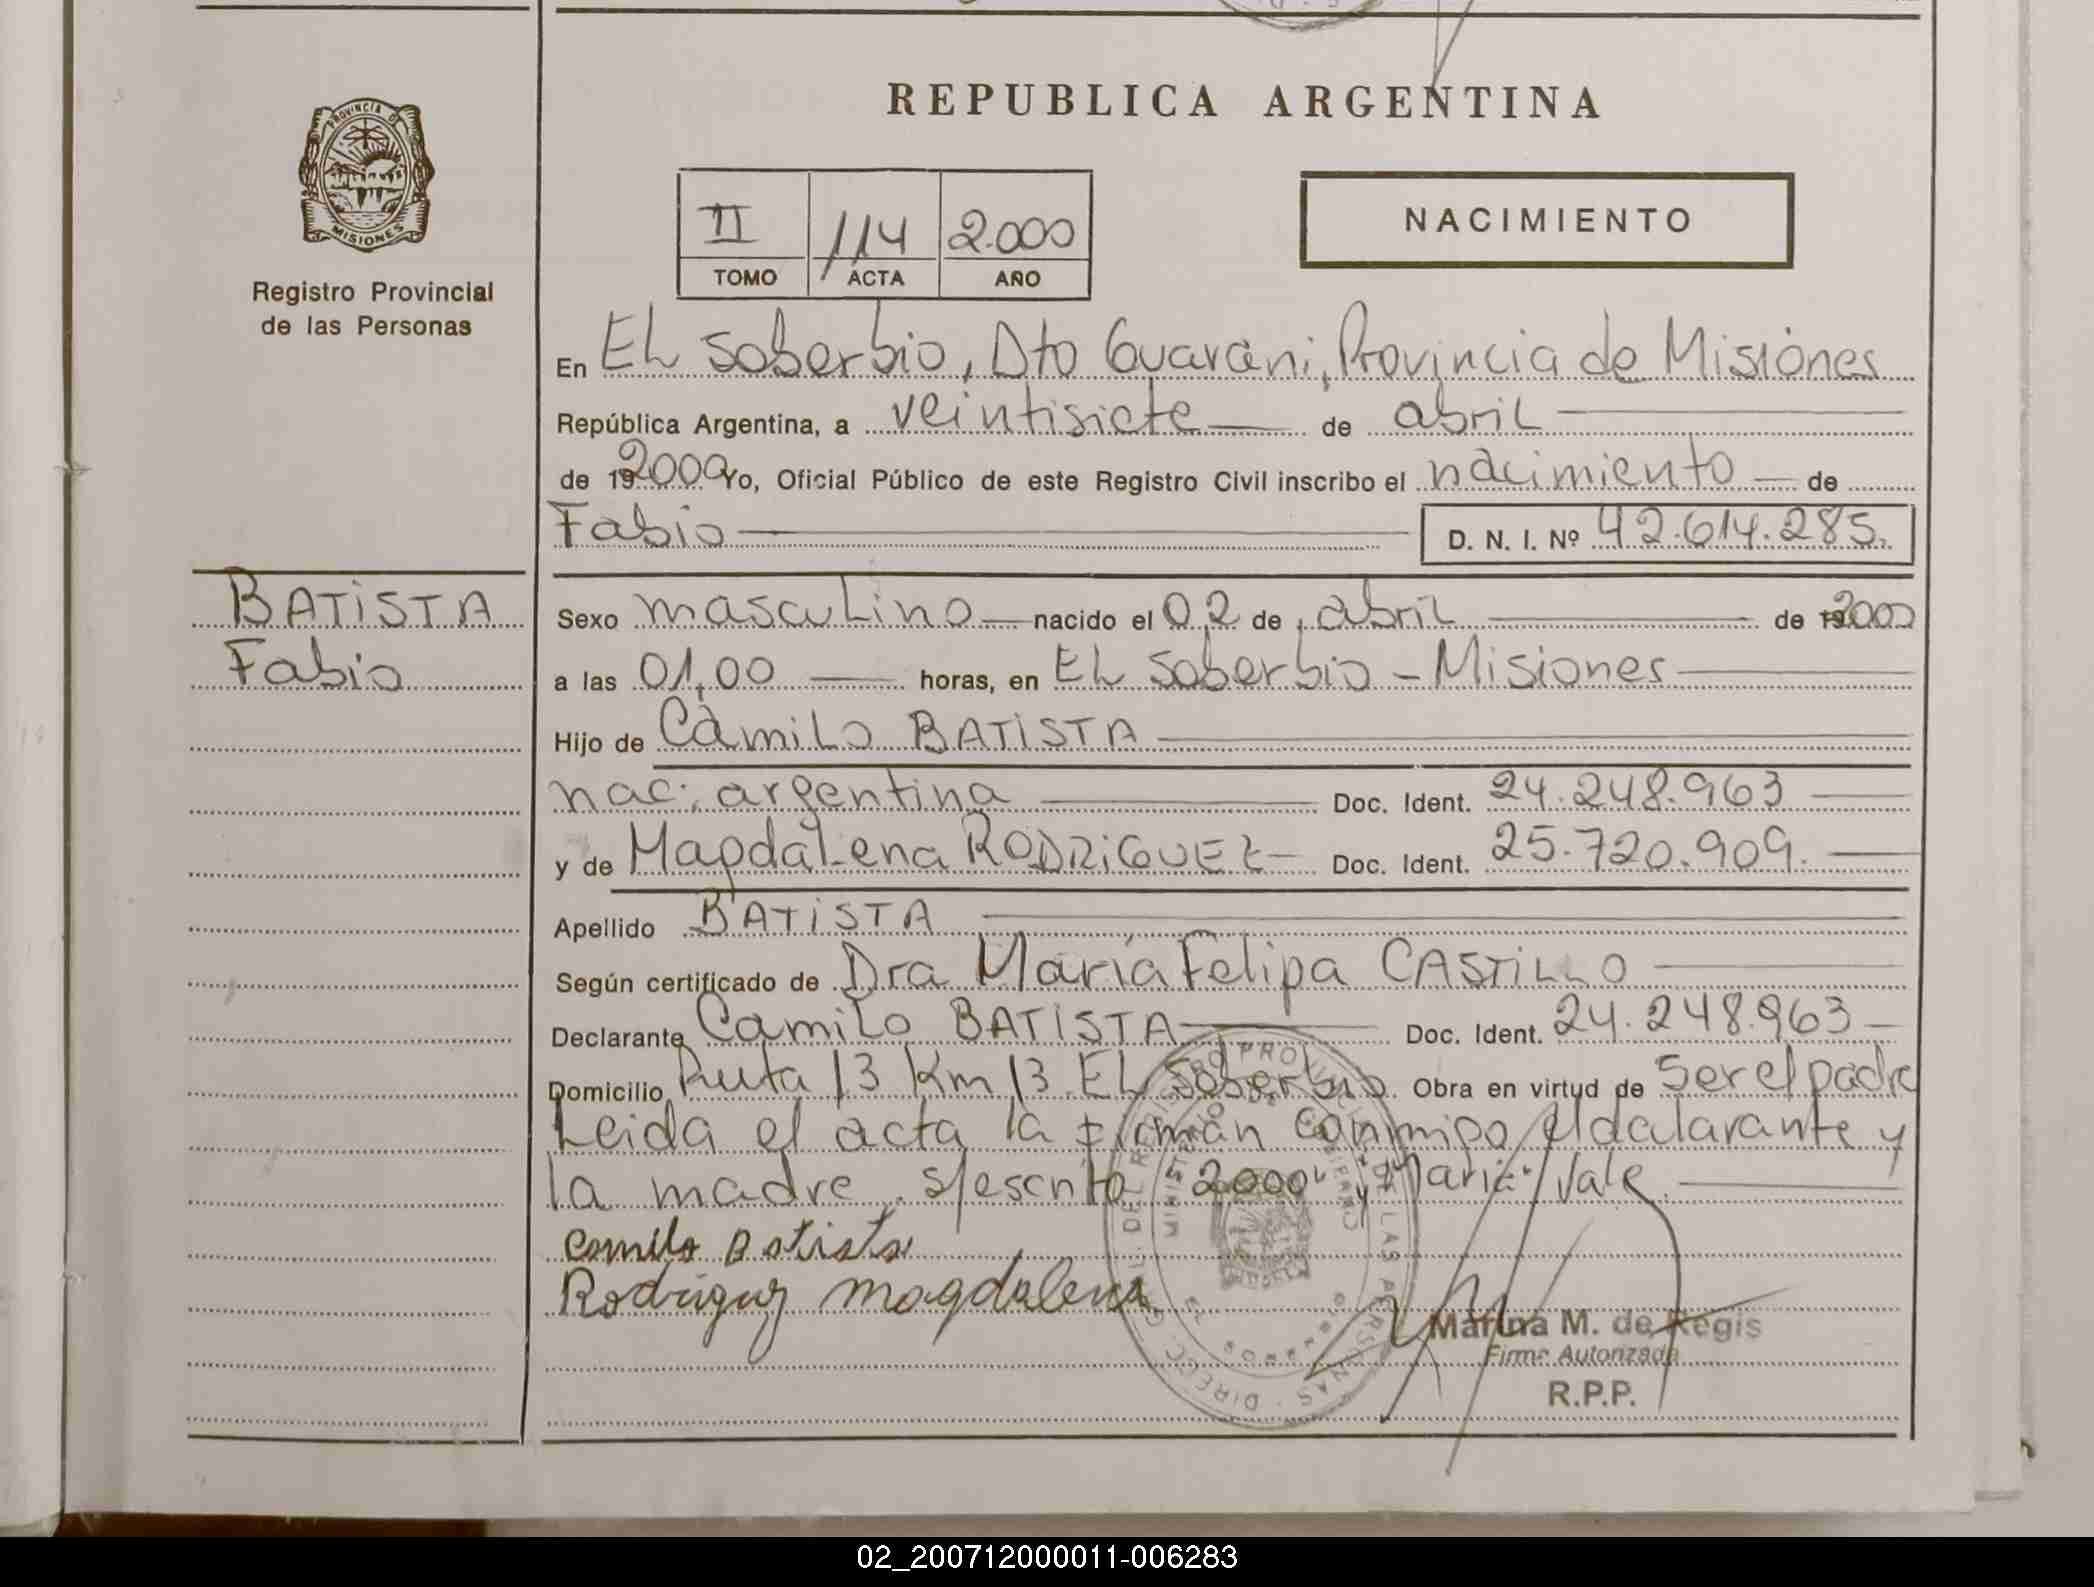 REPUBLICA ARGENTINA
PROVINCIA DE
MISIONES
Registro Provincial
de las Personas
II 114 2.000
TOMO ACTA AÑO
NACIMIENTO
En EL Soberbio, Dto Guaraní, Provincia de Misiones
República Argentina, a veintisiete de abril
de 19 2000 Yo, Oficial Público de este Registro Civil inscribo el nacimiento de
Fabio D. N. I. Nº 42.614.285.
BATISTA
Fabio
Sexo masculino nacido el 02 de abril de 19 2000
a las 01,00 horas, en EL Soberbio - Misiones
Hijo de Camilo BATISTA
nac: argentina Doc. Ident. 24.248.963
y de Magdalena RODRIGUEZ Doc. Ident. 25.720.909.
Apellido BATISTA
Según certificado de Dra María Felipa CASTILLO
Declarante Camilo BATISTA Doc. Ident. 24.248.963
Domicilio Ruta 13 Km 13 EL Soberbio Obra en virtud de ser el padre
Leida el acta la firman conmigo el dalarante y
la madre. s/escrito "2000" y "María" Vale.
Camilo Batista
Rodriguez Magdalena
Marina M. de Regis
Firma Autorizada
R.P.P.
02_200712000011-006283